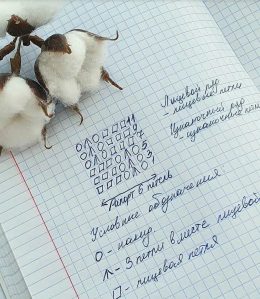 Лицевой ряд
- лицевые петли
Изнаночный ряд
- изнаночные
11
9
7
5
3
1
Раппорт 6 петель
Условные обозначения:
О - накид.
Λ - 3 петли вместе лицевой
□ - лицевая петля